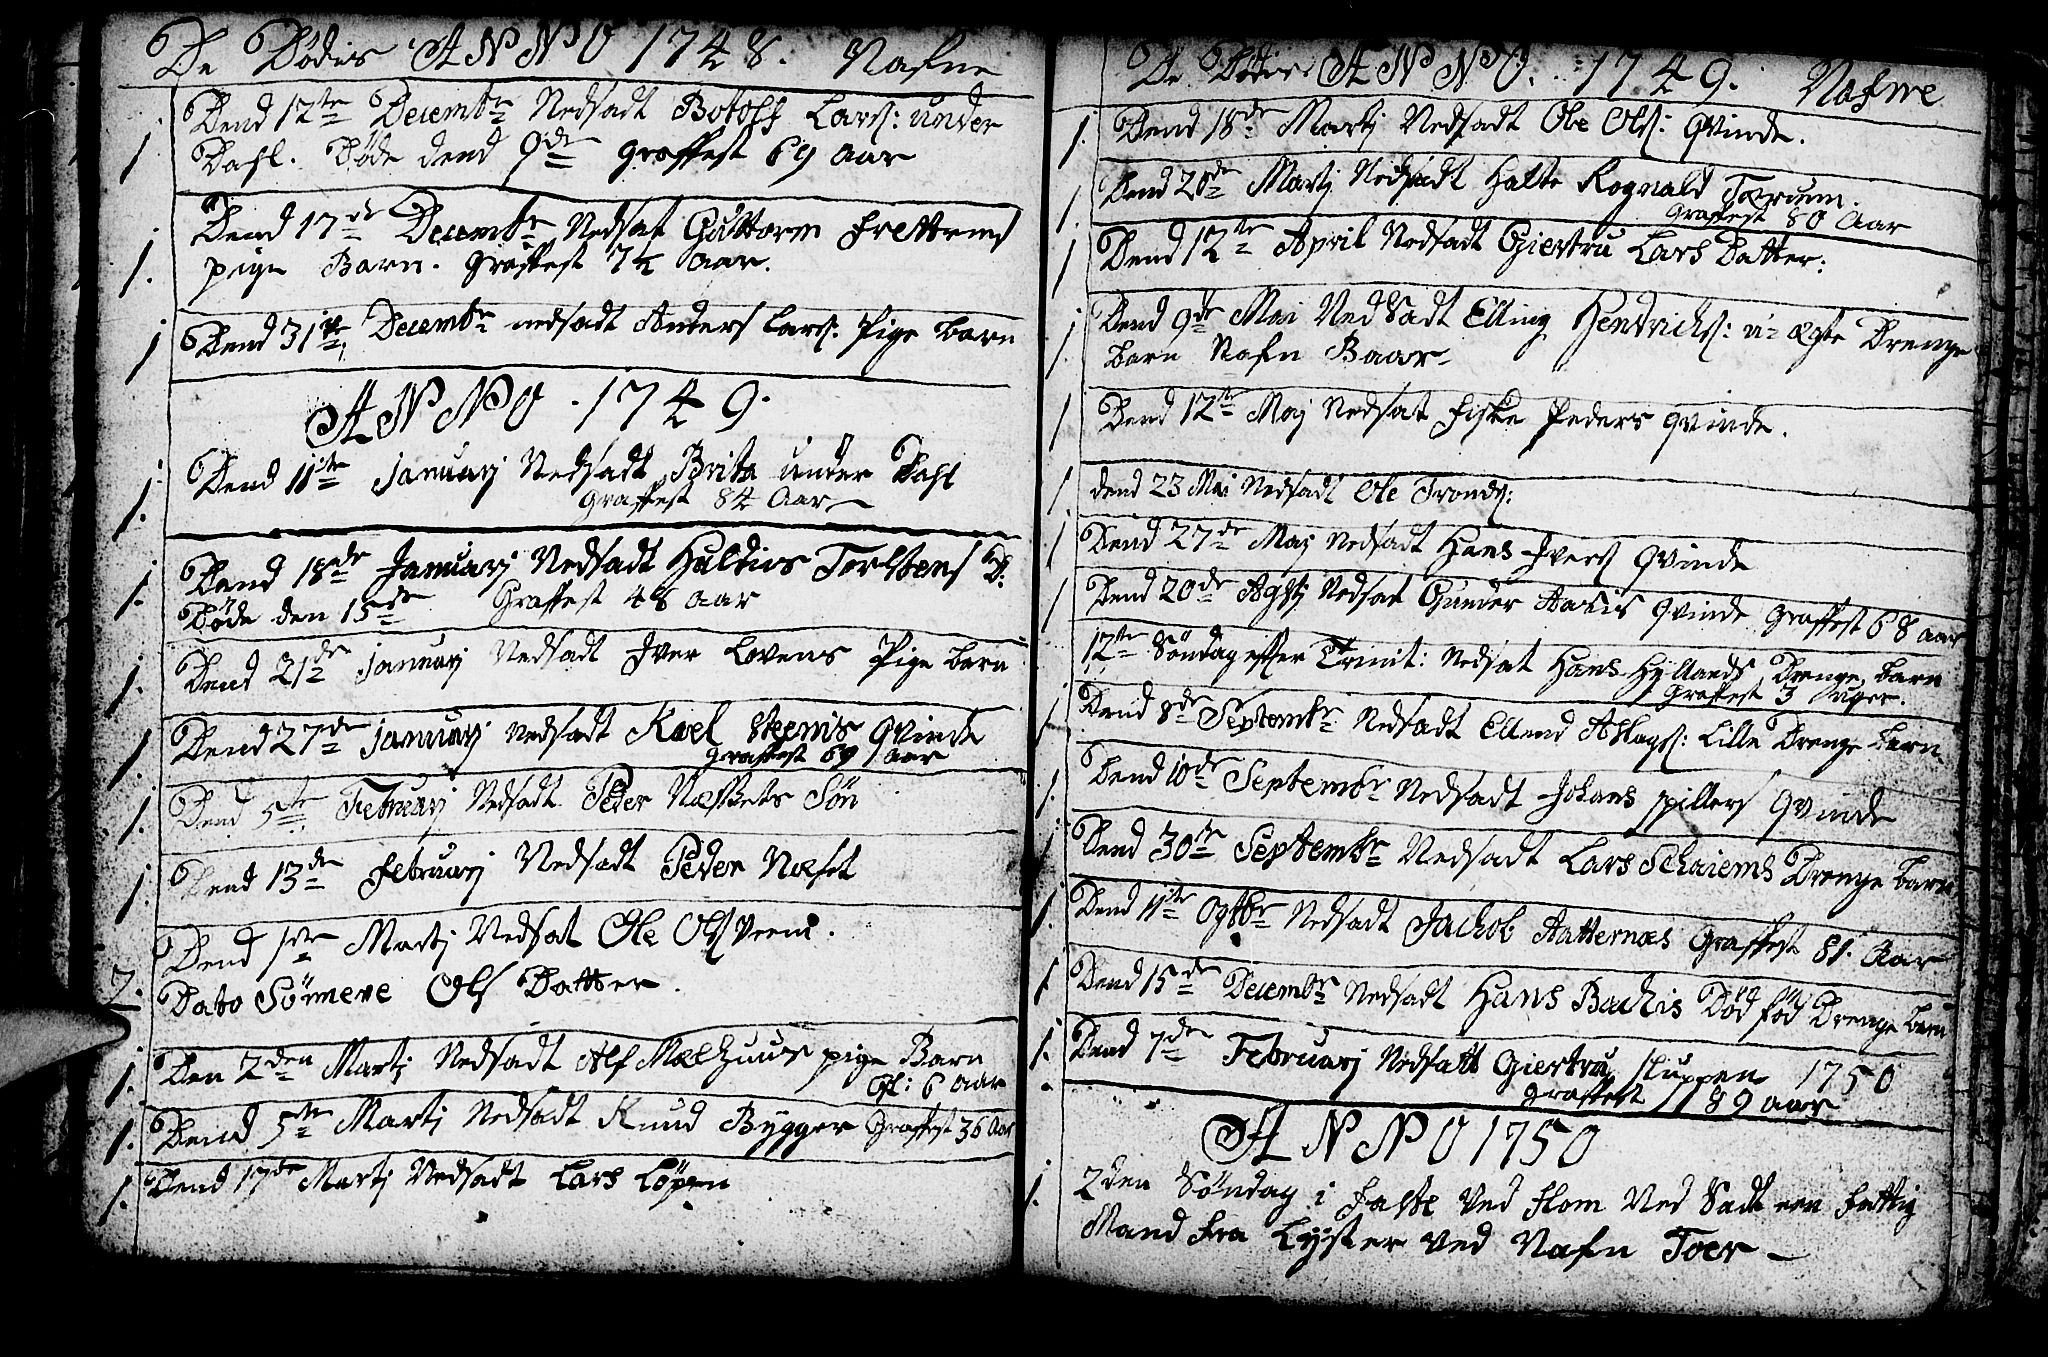 De Dödes ANNO 1748. Nafne
1. Dend 12te Decembr Nedsadt Botolf Lars: under
Dahl. Døde dend 9de graffest 69 aar
1. Dend 17de Decembr Nedsat Guttorm
pige Barn. graffest 7½ aar.
1 Dend 31te Decembr nedsadt Anders Lars: Pige barn
ANNO 1749.
1. Dend 11te Januarj Nedsadt Brita under Dahl
Graffest 84 Aar
1. Dend 18de Januarj Nedsadt Torstens D:
Døde den 15de Graffest 48 aar
1. Dend 21de Januarj Nedsadt Iver Lovens Pige barn
1 Dend 27de Januarj nedsadt Qvinde
graffest 69 Aar
1. Dend 5te Februarj Nedsadt Peder Næssets Søn
1. Dend 13de Februarj Nedsadt Peder Næset
Dend 1ste Martj Nedsat Ole Ols Veeni.
2. Dato Sørneve Ols Datter.
1. Den 2den Martj Nedsadt Alf Mælhuus pige Barn
Gf: 6 aar
1. Dend 5te Martj Nedsadt Knud Bygger Graffest 36 Aar
1. Dend 17de Martj Nedsadt Lars Løpen
De Döde ANNO. 1749. Nafne
1. Dend 18de Martj Nedsadt Ole Ols: Qvinde.
1. Dend 20de Martj Nedsadt Halte Rognald
Graffest 80 Aar
1 Dend 12te April Nedsadt Giertru Lars Datter:
1. Dend 9de Mai Nedsadt Elling Hendrichs: u-ægte Drenge
barn Nafn Baar
1 Dend 12te Maj Nedsat Fiske Peders Qvinde.
1 dend 23 Mai Nedsadt Ole Tronds:
1 Dend 27de Maj Nedsadt Hans Ivers Qvinde
1 Dend 20de Agstj Nedsat Gunder Qvinde Graffest 68 aar
1 12te Søndag effter Trinit: Nedsat Hans Hyllands Drenge barn
Graffest 3 uger.
1 Dend 8de Septembr Nedsadt Ellend Aslags: Lille Drenge barn
1. Dend 10de Septembr Nedsadt Johans spillers Qvinde
1. Dend 30te Septembr Nedsadt Lars Schaiems Drenge barn
1. Dend 11te Ogtbr Nedsadt Jachob Aatternæs Graffest 81. Aar
1. Dend 15de Decembr Nedsadt Hans Bachis Død fød Drenge barn
1. Dend 7de Februarj Nedsatt Giertru sluppen 1750
graffest 89 aar
ANNO 1750
1. 2den Søndag i Faste Ved Flom Ned Sadt een fattig
Mand Fra Lyster ved Nafn Toer